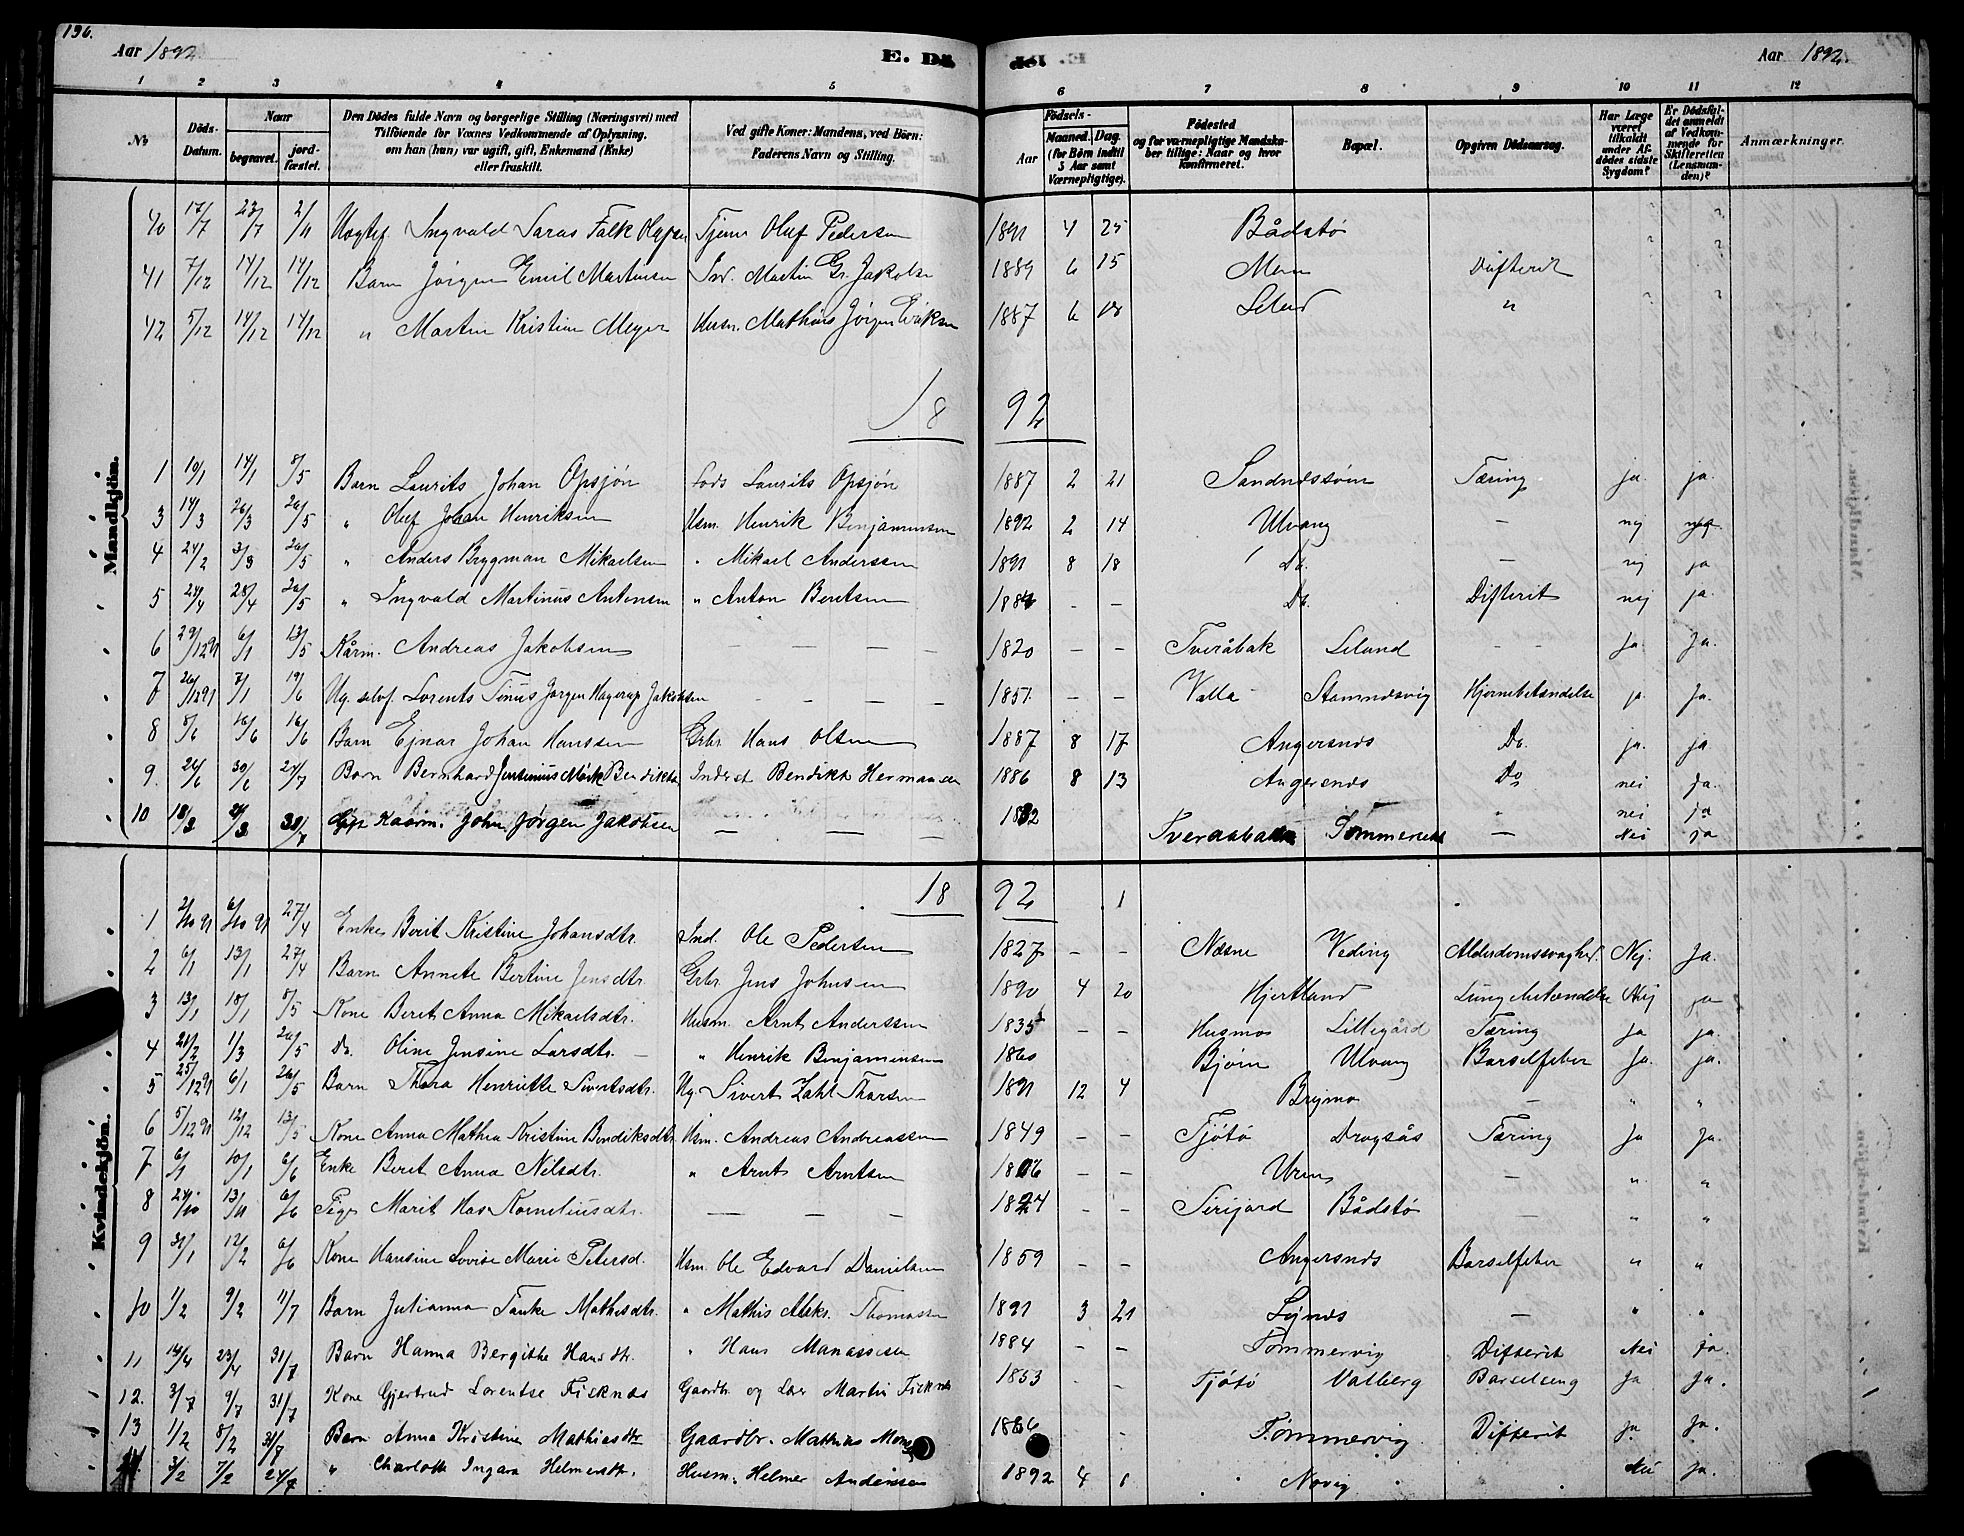 196.
Aar 1892
E. Dö- de. Aar 1892.
1 2 3 4 5 6 7 8 9 10 11 12
No
Döds-Datum.
Naar
begravet. jord-fæstet.
Den Dödes fulde Navn og borgerlige Stilling (Næringsvei) med
Tilföiende for Voxnes Vedkommende af Oplysning,
om han (hun) var ugift, gift, Enkemand (Enke)
eller fraskilt.
Ved gifte Koner: Mandens, ved Börn:
Faderens Navn og Stilling.
Födsels-
Aar Maaned. Dag.
(for Börn indtil 5 Aar samt Værnepligtige).
Födested
og for værnepligtige Mandska-
ber tillige: Naar og hvor
konfirmeret.
Bopæl.
Opgiven Dödsaarsag.
Har Læge været tilkaldt under Af-dödes sidste Sygdom?
Er Dödsfal-det anmeldt af Vedkom-mende for Skifteretten (Lensman-den)?
Anmærkninger.
Mandkjön.
40 17/7 23/7 2/11 Ingvald Saras Falk Olufsen Tjener Oluf Pedersen 1891 4 25 Bådstø
41 7/12 14/12 14/12 Barn Jørgen Emil Martinsen Ind. Martin Gr. Jakobsen 1889 6 15 Difterit
42 5/12 14/12 14/12 " Martin Kristian Meyer Husm. Mathias Jørgen Eriksen 1887 6 18 Leland "
18 92
1 10/1 14/1 8/5 Barn Laurits Johan Opsjøn Lods Laurits Opsjøn 1887 2 21 Sandnessøen Tæring ja. ja.
3 14/3 26/3 26/5 " Oluf Johan Henriksen Husm. Henrik Benjaminsen 1892 2 14 Ulvang – nej
4 24/2 3/3 26/5 " Anders Brygman Mikaelsen " Mikael Anderssen 1891 8 18 Do. – nej ja
5 24/4 28/4 26/5 " Ingvald Martinus Antonsen " Anton Beritsen – – Do. Difterit nej ja.
6 29/12 91 6/1 13/5 Kårm. Andreas Jakobsen – – – 1820 – – Tveråbak Leland – Ja. Ja.
7 26/12 91 7/1 19/6 Ug. selvf. Lorents Tinus Jørgen Hagerup Jakobsen – – – 1851. – – Valla Stamnesvig Hjernebetændelse ja. Ja.
8 8/6 16/6 16/6 Barn Ejnar Johan Hanssen Grbr. Hans Olsen 1887 8 17 Angersnes Do. ja. ja
9. 24/6 30/6 24/7 Barn Bernhard Jentinius Mörk Bendikts. Inderst Bendikt Hermansen 1886 8 13 Angersnes Do nei Ja.
10 18/3 3/7 Kaarm. John Jørgen Jakobsen – – – Tveraabakk – nei ja
Nei ja
Kvindekjön.
18 92 1
1 2/10 91 6/10 91 27/4 Enke Berit Kristine Johansdtr. Ind. Ole Pedersen 1827 – – Næsne Veding Alderdomssvaghed. Nej. Ja.
2 6/1 13/1 27/4 Barn Annete Bertine Jensdtr. Grbr Jens Johnsen 1890 4 20 Hjertland Lungebetændelse Nej ja
3 13/1 18/1 8/5 Kone Beret Anna Mikaelsdtr. Husm. Arnt Anderssen 1835 – – Husmo Littlegård Tæring ja ja.
4 20/2 1/3 26/5 Do. Oline Jensine Larsdtr. – " Henrik Benjaminsen 1860 Bjørn Ulvang Barselfeber Ja. ja.
5 25/12 91 6/1 26/5 Barn Thora Henriette Sivertsdtr. Ug. Sivert Zahl Thorsen 1891 12 4 Brymo – " "
6 5/12 91 12/12 13/5 Kone Anna Mathea Kristine Bendiksdtr Husm. Andreas Andreassen 1849 – – Tjøtø Drogsås Tæring Ja Ja.
7 6/1 10/1 6/6 Enke Berit Anna Nilsdtr. " Arnt Arntsen – – – " "
8 24/10 13/11 6/6 Pige Marit Has Kornelinsdtr. – – – 1824 – – Bådstø – " "
9 31/1 12/2 6/6 Kone Hansine Lovise Marie Petersd. Husm. Ole Edvard Danielsen 1859 – – Angersnes Barselfeber " "
10 1/2 9/2 11/7 Barn Julianna Tanke Mathisdtr. " Mathis Aleks. Thomassen 1891 3 21 – " "
11 14/4 23/4 31/7 Barn Hanna Bergithe Hansdtr. " Hans Manassesen 1884 – – Tømmervig Difterit Nei Ja.
12. 3/7 9/7 31/7 Kone Gjertrud Lorentse Fisknæs Gaardbr og Lær Martin Fisknæs 1853 – – Tjøtø Valberg Barselseng Ja Ja.
13 1/2 8/2 31/7 Barn Anna Kristine Mathiasdtr Gaardbr. Mathias – Tømmervig Difterit Ja. Ja.
3/2 7/2 24/7 " Charlotte Ingara Helmersdtr. Husm. Helmer Anderssen 1892 4 Nei Ja.